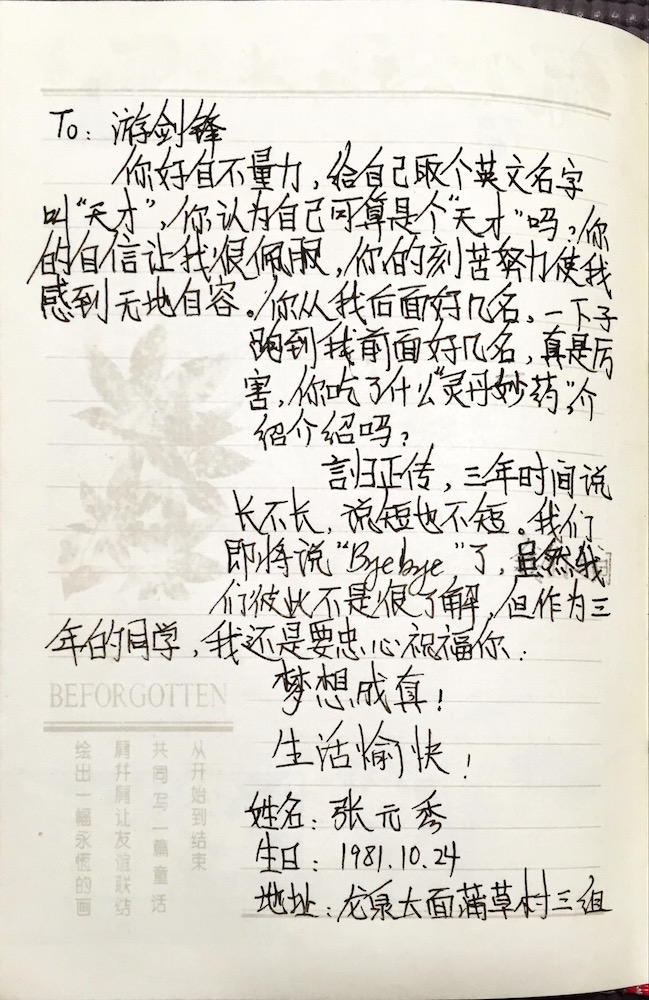 To: 游剑锋
你好自不量力，给自己取个英文名字
叫“天才”，你认为自己可算是个“天才”吗？你
的自信让我很佩服，你的刻苦努力使我
感到无地自容。你从我后面好几名，一下子
跑到我前面好几名，真是厉
害，你吃了什么“灵丹妙药”，介
绍介绍吗？
言归正传，三年时间说
长不长，说短也不短。我们
即将说“Byebye”了，虽然我
们彼此不是很了解，但作为三
年的同学，我还是要忠心祝福你：
梦想成真！
生活愉快！
姓名：张元秀
生日：1981.10.24
地址：龙泉大面蒲草村三组
BEFORGOTTEN
从开始到结束
共同写一篇童话
肩并肩让友谊联结
绘出一幅永恒的画